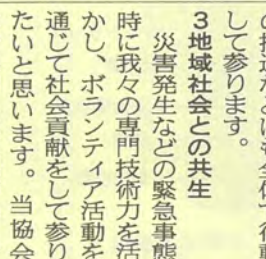 して参ります。
3地域社会との共生
災害発生などの緊急事態
時に我々の専門技術力を活
かし、ボランティア活動を
通じて社会貢献をして参り
たいと思います。 当協会